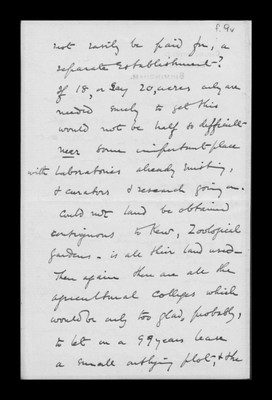 f. 9v
not easily be paid for, a
separate Establishment-?
If 18, or say 20, acres only are
needed surely to get this
would not be half so difficult-
near some important place
with laboratories already existing,
& curators & research going on.
Could not land be obtained
contiguous to Kew, Zoological
gardens - is all their land used -
Then again there are all the
agricultural colleges which
would be only too glad, probably,
to let on a 99 years lease
a small outlying plot, & the